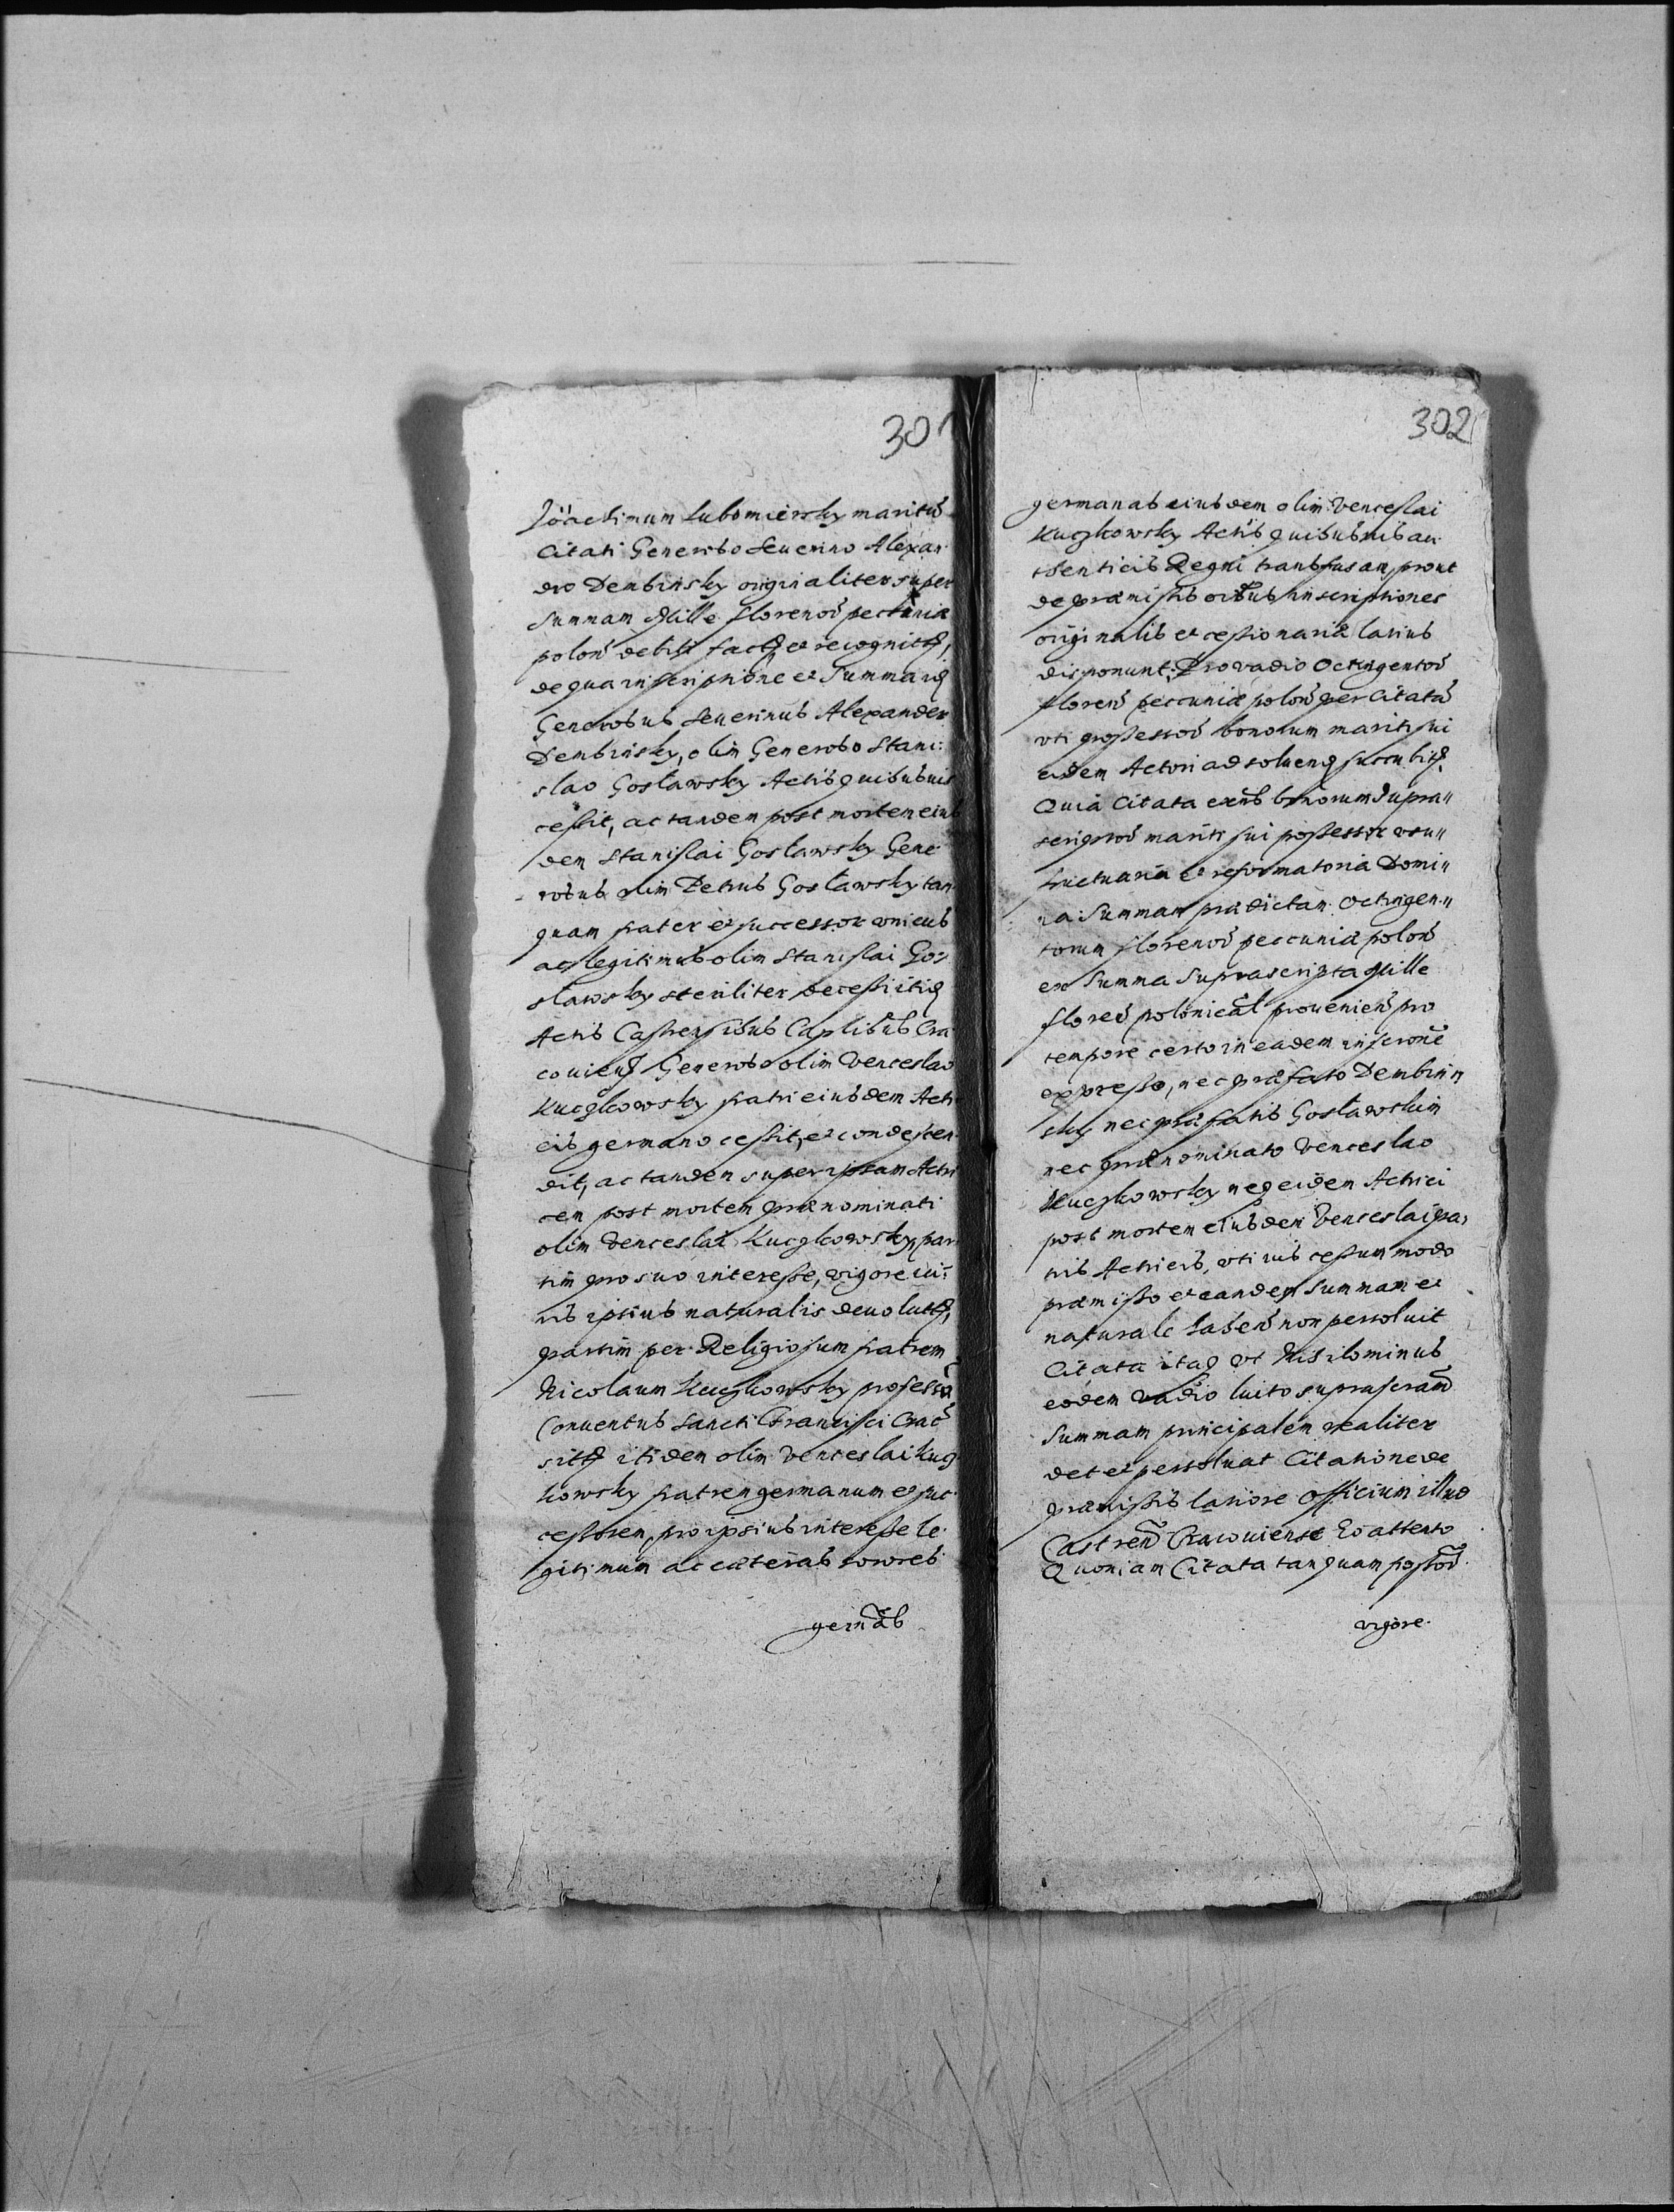 301
Joachimum Lubomiersky maritũ
Citati Generoso Seuerino Alexan
dro Dembinsky originaliter super
Summam Mille florenoꝝ pecuniæ
poloń debiti factꝭ et recognitꝭ,
de qua inscriptione et Summa idꝫ
Generosus Seuerinus Alexander
Dembinsky, olim Generoso Stani:
slao Gosławsky Actis quibusuis
cessit, ac tandem post mortem eius
dem Stanislai Gosławsky Gene
rosus olim Petrus Gosławsky tan
quam frater et successor vnicus
ac legitimus olim Stanislai Go:
sławsky steriliter decessi itidꝫ
Actis Castrensibus Caplibus Cra
couienꝭ Generoso olim Venceslao
Kuczkowsky fratri eiusdem Actri
cis germano cessit, et condescen
dit, ac tandem super ipsam Actri
cem post mortem prænominati
olim Venceslai Kuczkowsky, par
tim pro suo interesse, vigore iu:
ris ipsius naturalis deuolutꝭ,
partim per Religiosum fratrem
Nicolaum Kuczkowsky professũ
Conuentus Sancti Francisci Crac̃
sitꝭ itidem olim Venceslai Kucz
kowsky fratrem germanum et suc
cessorem, pro ipsius interesse le
gitimum ac cæteras sorores
germãs
302
germanas eiusdem olim Venceslai
Kuczkowsky Actis quibusuis au
thenticis Regni transfusam, prout
de præmissis oĩbus inscriptiones
originalis et cessionaria latius
disponunt. Pro vadio Octingentoꝝ
floreń peccuniæ poloń per Citatã
vti possessoꝝ bonorum mariti sui
eidem Actori ad soluenꝭ succubitꝭ.
Quia Citata exñs bonorum Supra"
scriptoꝝ mariti sui possessrix vsu"
fructuaria et reformatoria Domi"
na Summam prædictam Octingen"
torum florenoꝝ peccuniæ poloń
ex Summa Suprascripta Mille
floreń polonicał prouenień pro
tempore certo in eadem inscriõne
expresso, nec præfato Dembin"
sky nec præfatis Gosławskim
nec prænominato Venceslao
Kuczkowsky neqꝫ eidem Actrici
post mortem eiusdem Venceslai fra,
tris Actricis, vti ius cessum modo
præmisso et eandem Summam et
naturale habeń non persoluit
Citata itaqꝫ vt Nihilominus
eodem Vadio luito suprascram̃
Summam principalem realiter
det et persoluat Citatione de
præmissis latiore Officium illud
Castreń Cracouiense Eo attento
Quoniam Citata tanquam possoꝝ
vigore.